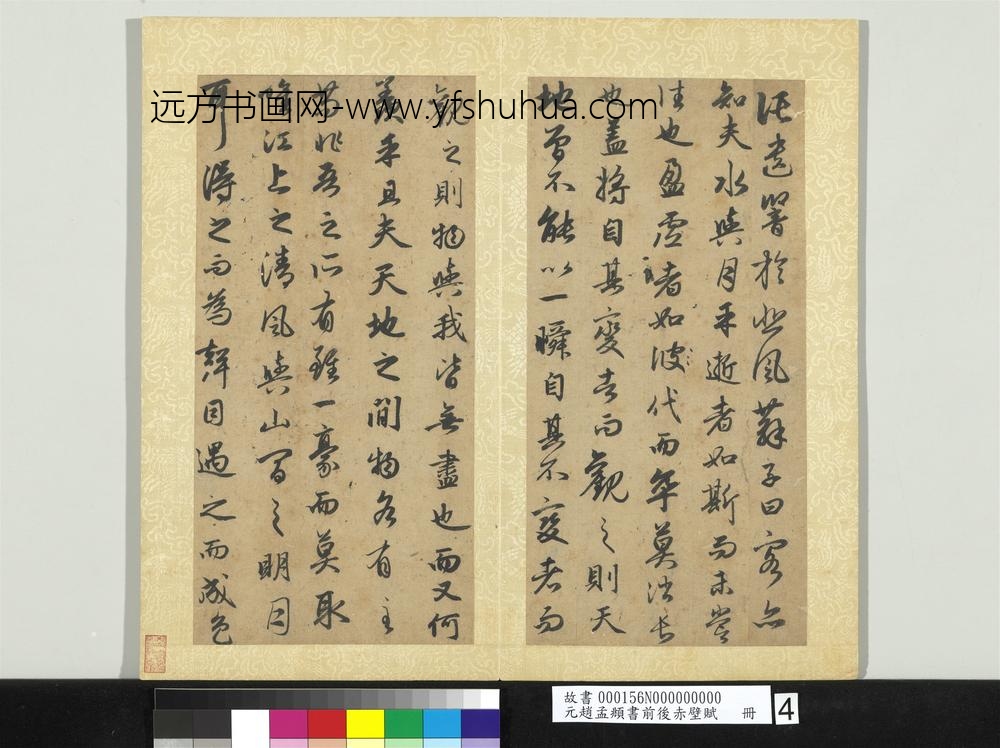 託遺響於悲風蘇子曰客亦
知夫水與月乎逝者如斯而未嘗
往也盈虛者如彼代而卒莫消長
也蓋將自其變者而觀之則天
地曾不能以一瞬自其不變者而
觀之則物與我皆無盡也而又何
羨乎且夫天地之間物各有主
苟非吾之所有雖一豪而莫取
惟江上之清風與山間之明月
耳得之而為聲目遇之而成色
远方书画网-www.yfshuhua.com
故書 000156N000000000
元趙孟頫書前後赤壁賦 冊
4